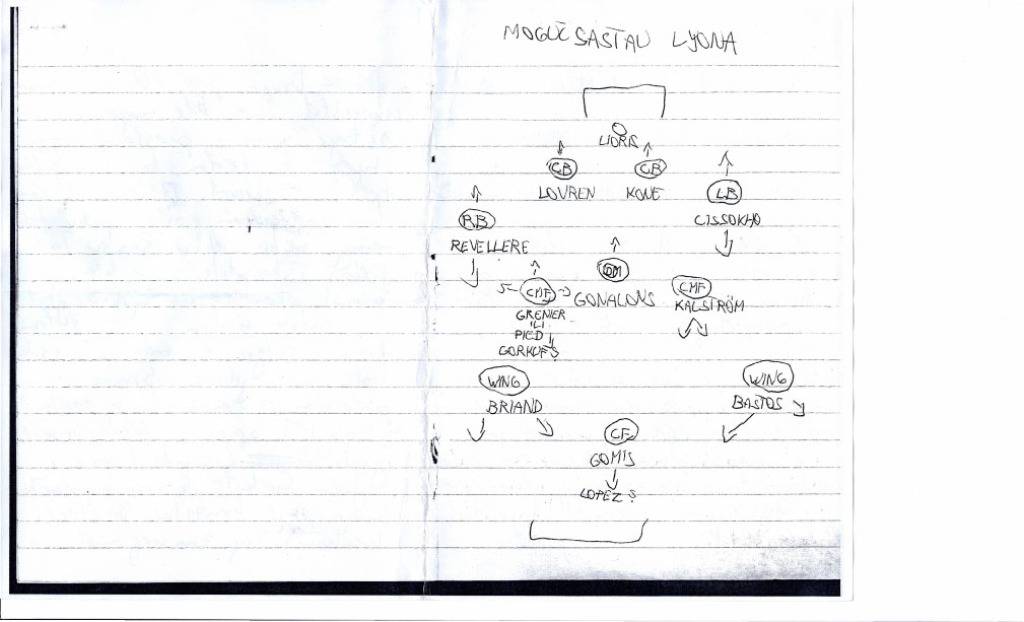 MOGUĆ SASTAV LYONA
LLORIS
CB CB
LOVREN KONE
LB
CISSOKHO
RB
REVELLERE
DM
GONALONS
CMF CMF
KALSTRÖM
GRENIER
ILI
PIED
GORKUF?
WING WING
BRIAND BASTOS
CF
GOMIS
LOPEZ ?